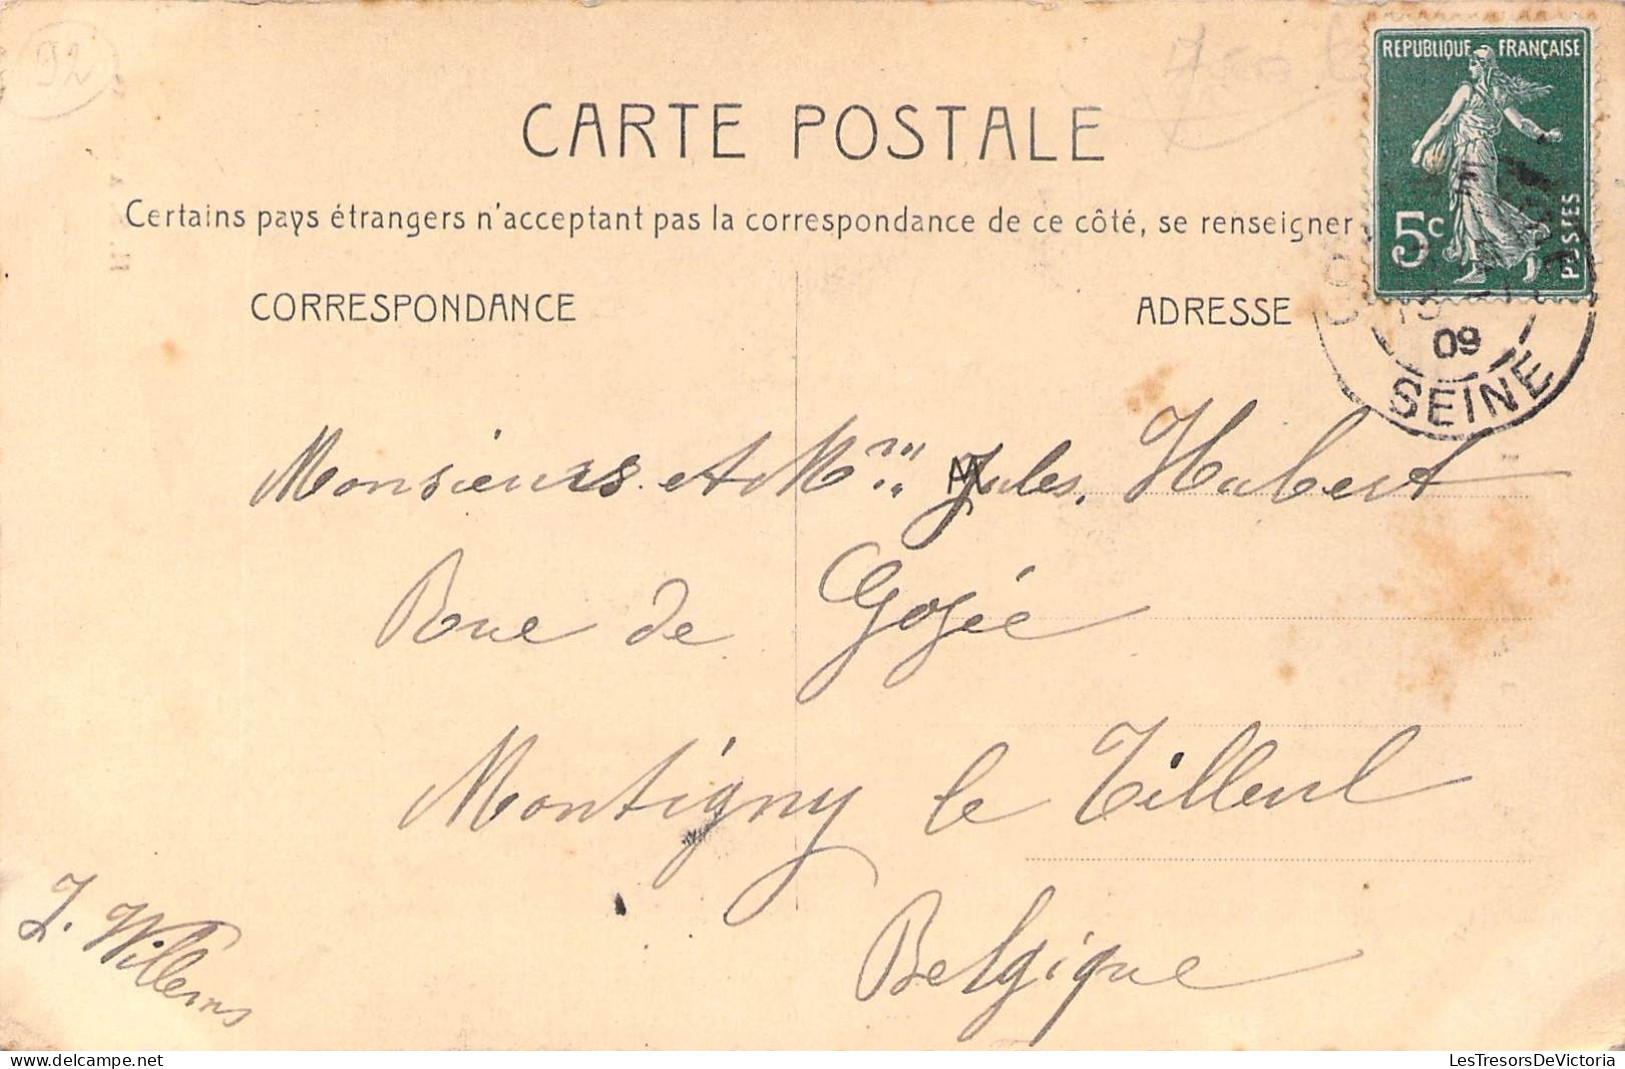 92
RÉPUBLIQUE FRANÇAISE
5c
POSTES
CARTE POSTALE
Certains pays étrangers n'acceptant pas la correspondance de ce côté, se renseigner
CORRESPONDANCE
ADRESSE
09
SEINE
Monsieurs et Mme Jules Hubert
Rue de Gozée
Montigny le Tilleul
Belgique
J. Willems
LesTresorsDeVictoria